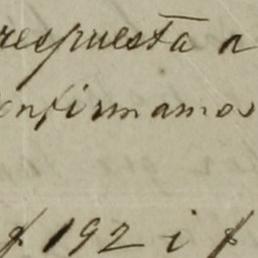 respuesta a
onfirmamos
192 i